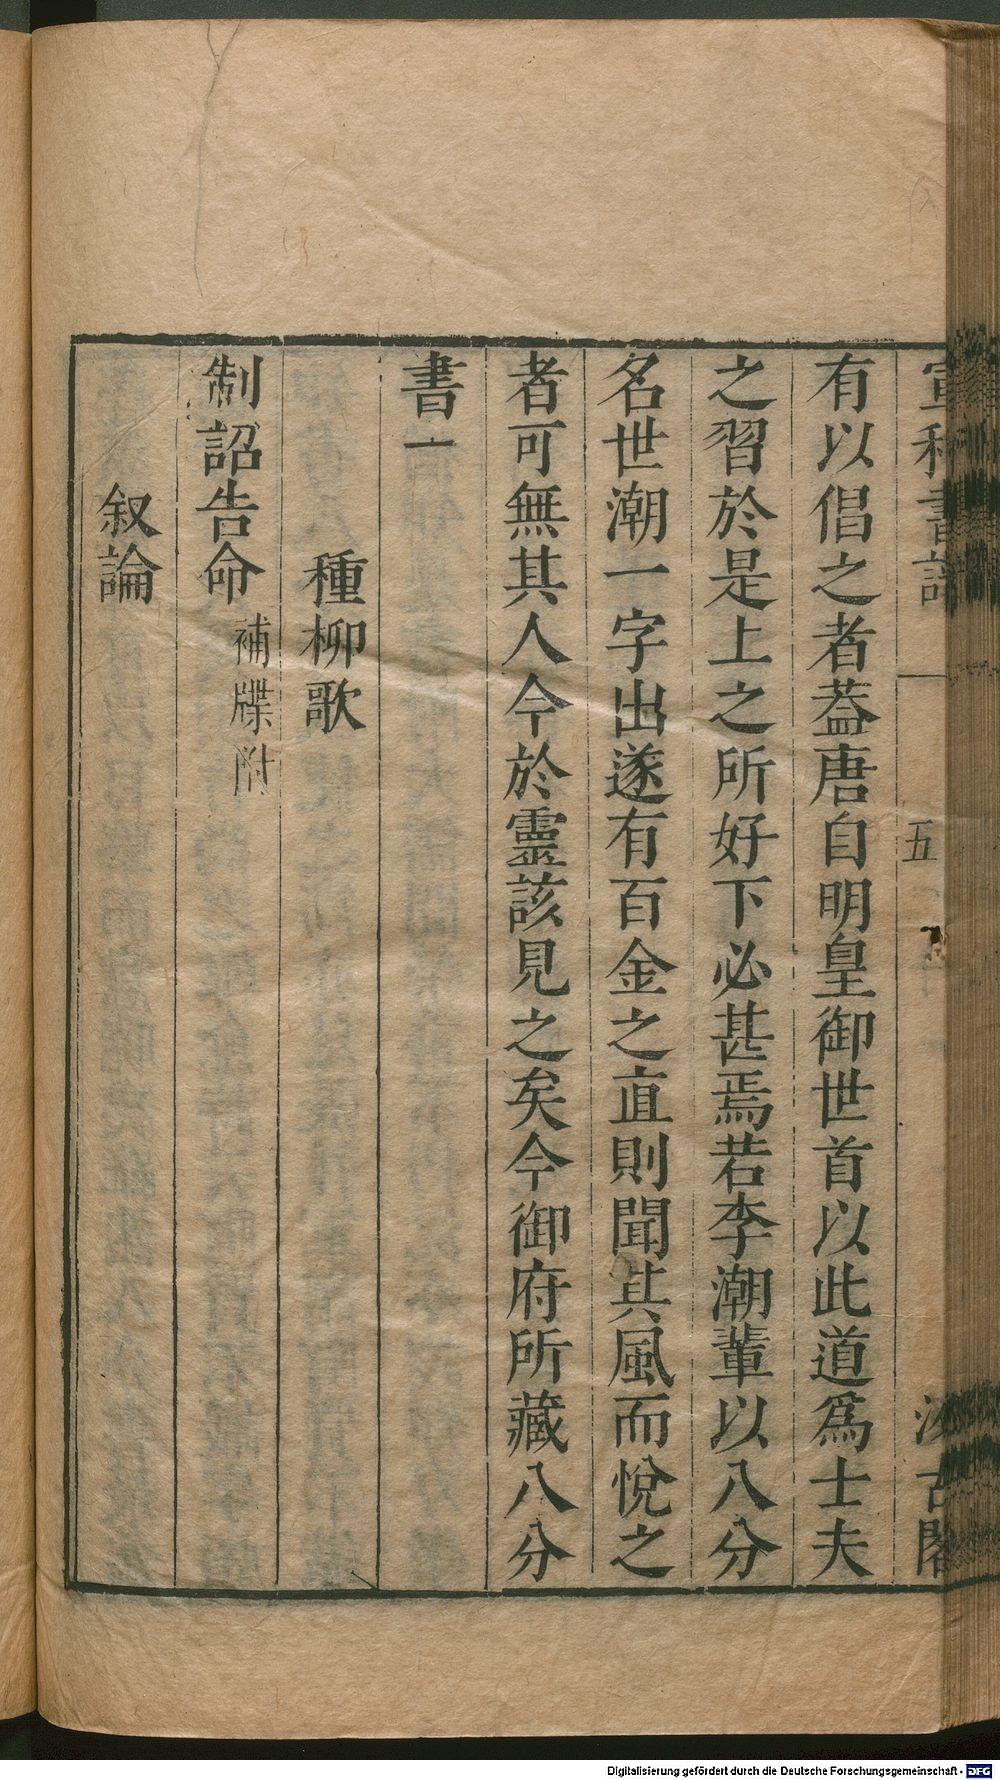 宣和書譜 五 汲古閣
有以倡之者葢唐自明皇御世首以此道爲士夫
之習於是上之所好下必甚焉若李潮輩以八分
名世潮一字出遂有百金之直則聞其風而悅之
者可無其人今於靈該見之矣今御府所藏八分
書一
種柳歌
制詔告命 補牒附
叙論
Digitalisierung gefördert durch die Deutsche Forschungsgemeinschaft - DFG